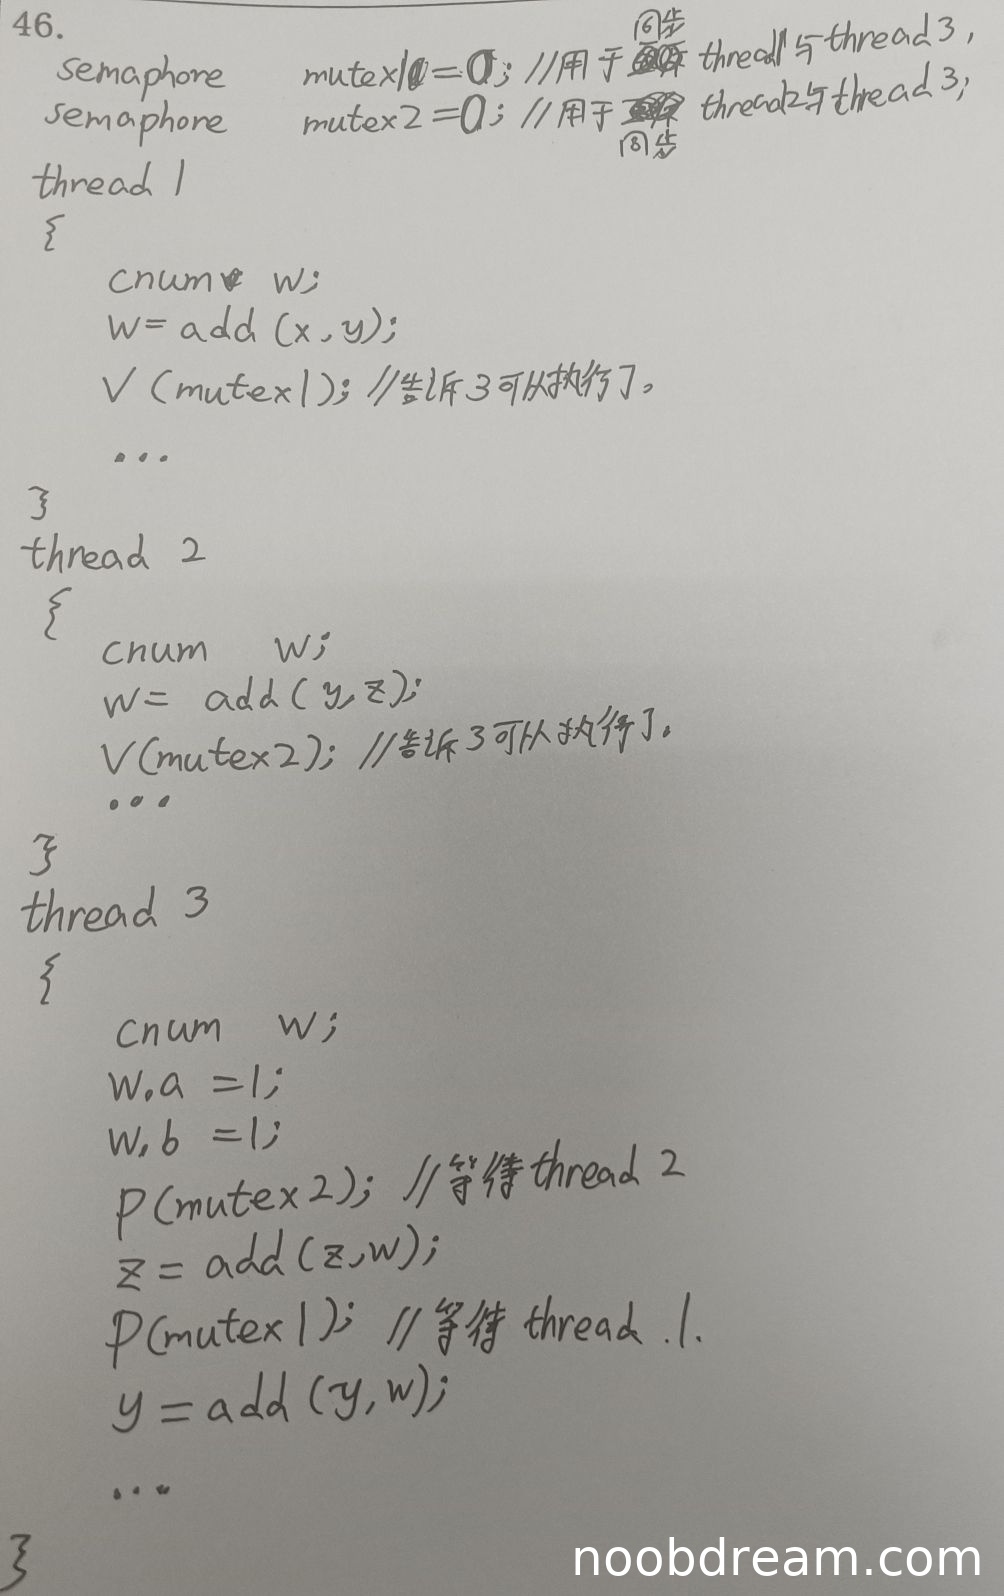 46.
semaphore mutex1 =0; //用于同步 thread1与thread3,
semaphore mutex2=0; //用于同步 thread2与thread3;
thread 1
{
cnum w;
w=add (x,y);
V (mutex1); //告诉3可以执行了。
...
}
thread 2
{
cnum w;
w= add(y,z);
V(mutex2); //告诉3可以执行了。
...
}
thread 3
{
cnum w;
w.a =1;
w.b =1;
P(mutex2); //等待thread 2
z=add(z,w);
P(mutex1); //等待 thread .1.
y=add(y,w);
...
}
noobdream.com